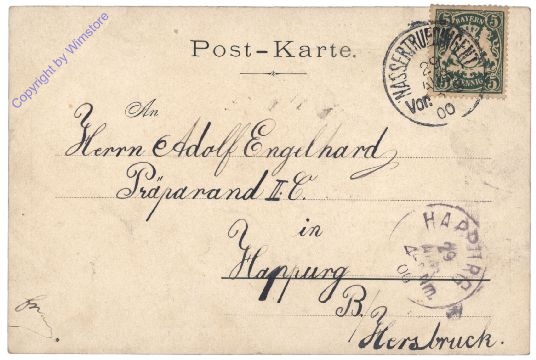 Copyright by Wimstore
Post-Karte.
5 BAYERN 5
PFENNIG
WASSERTRUEDINGEN
Vor.
00
An
Herrn Adolf Engelhard
Präparand II. C.
in
Happurg
B/ Hersbruck.
HAPPURG
00